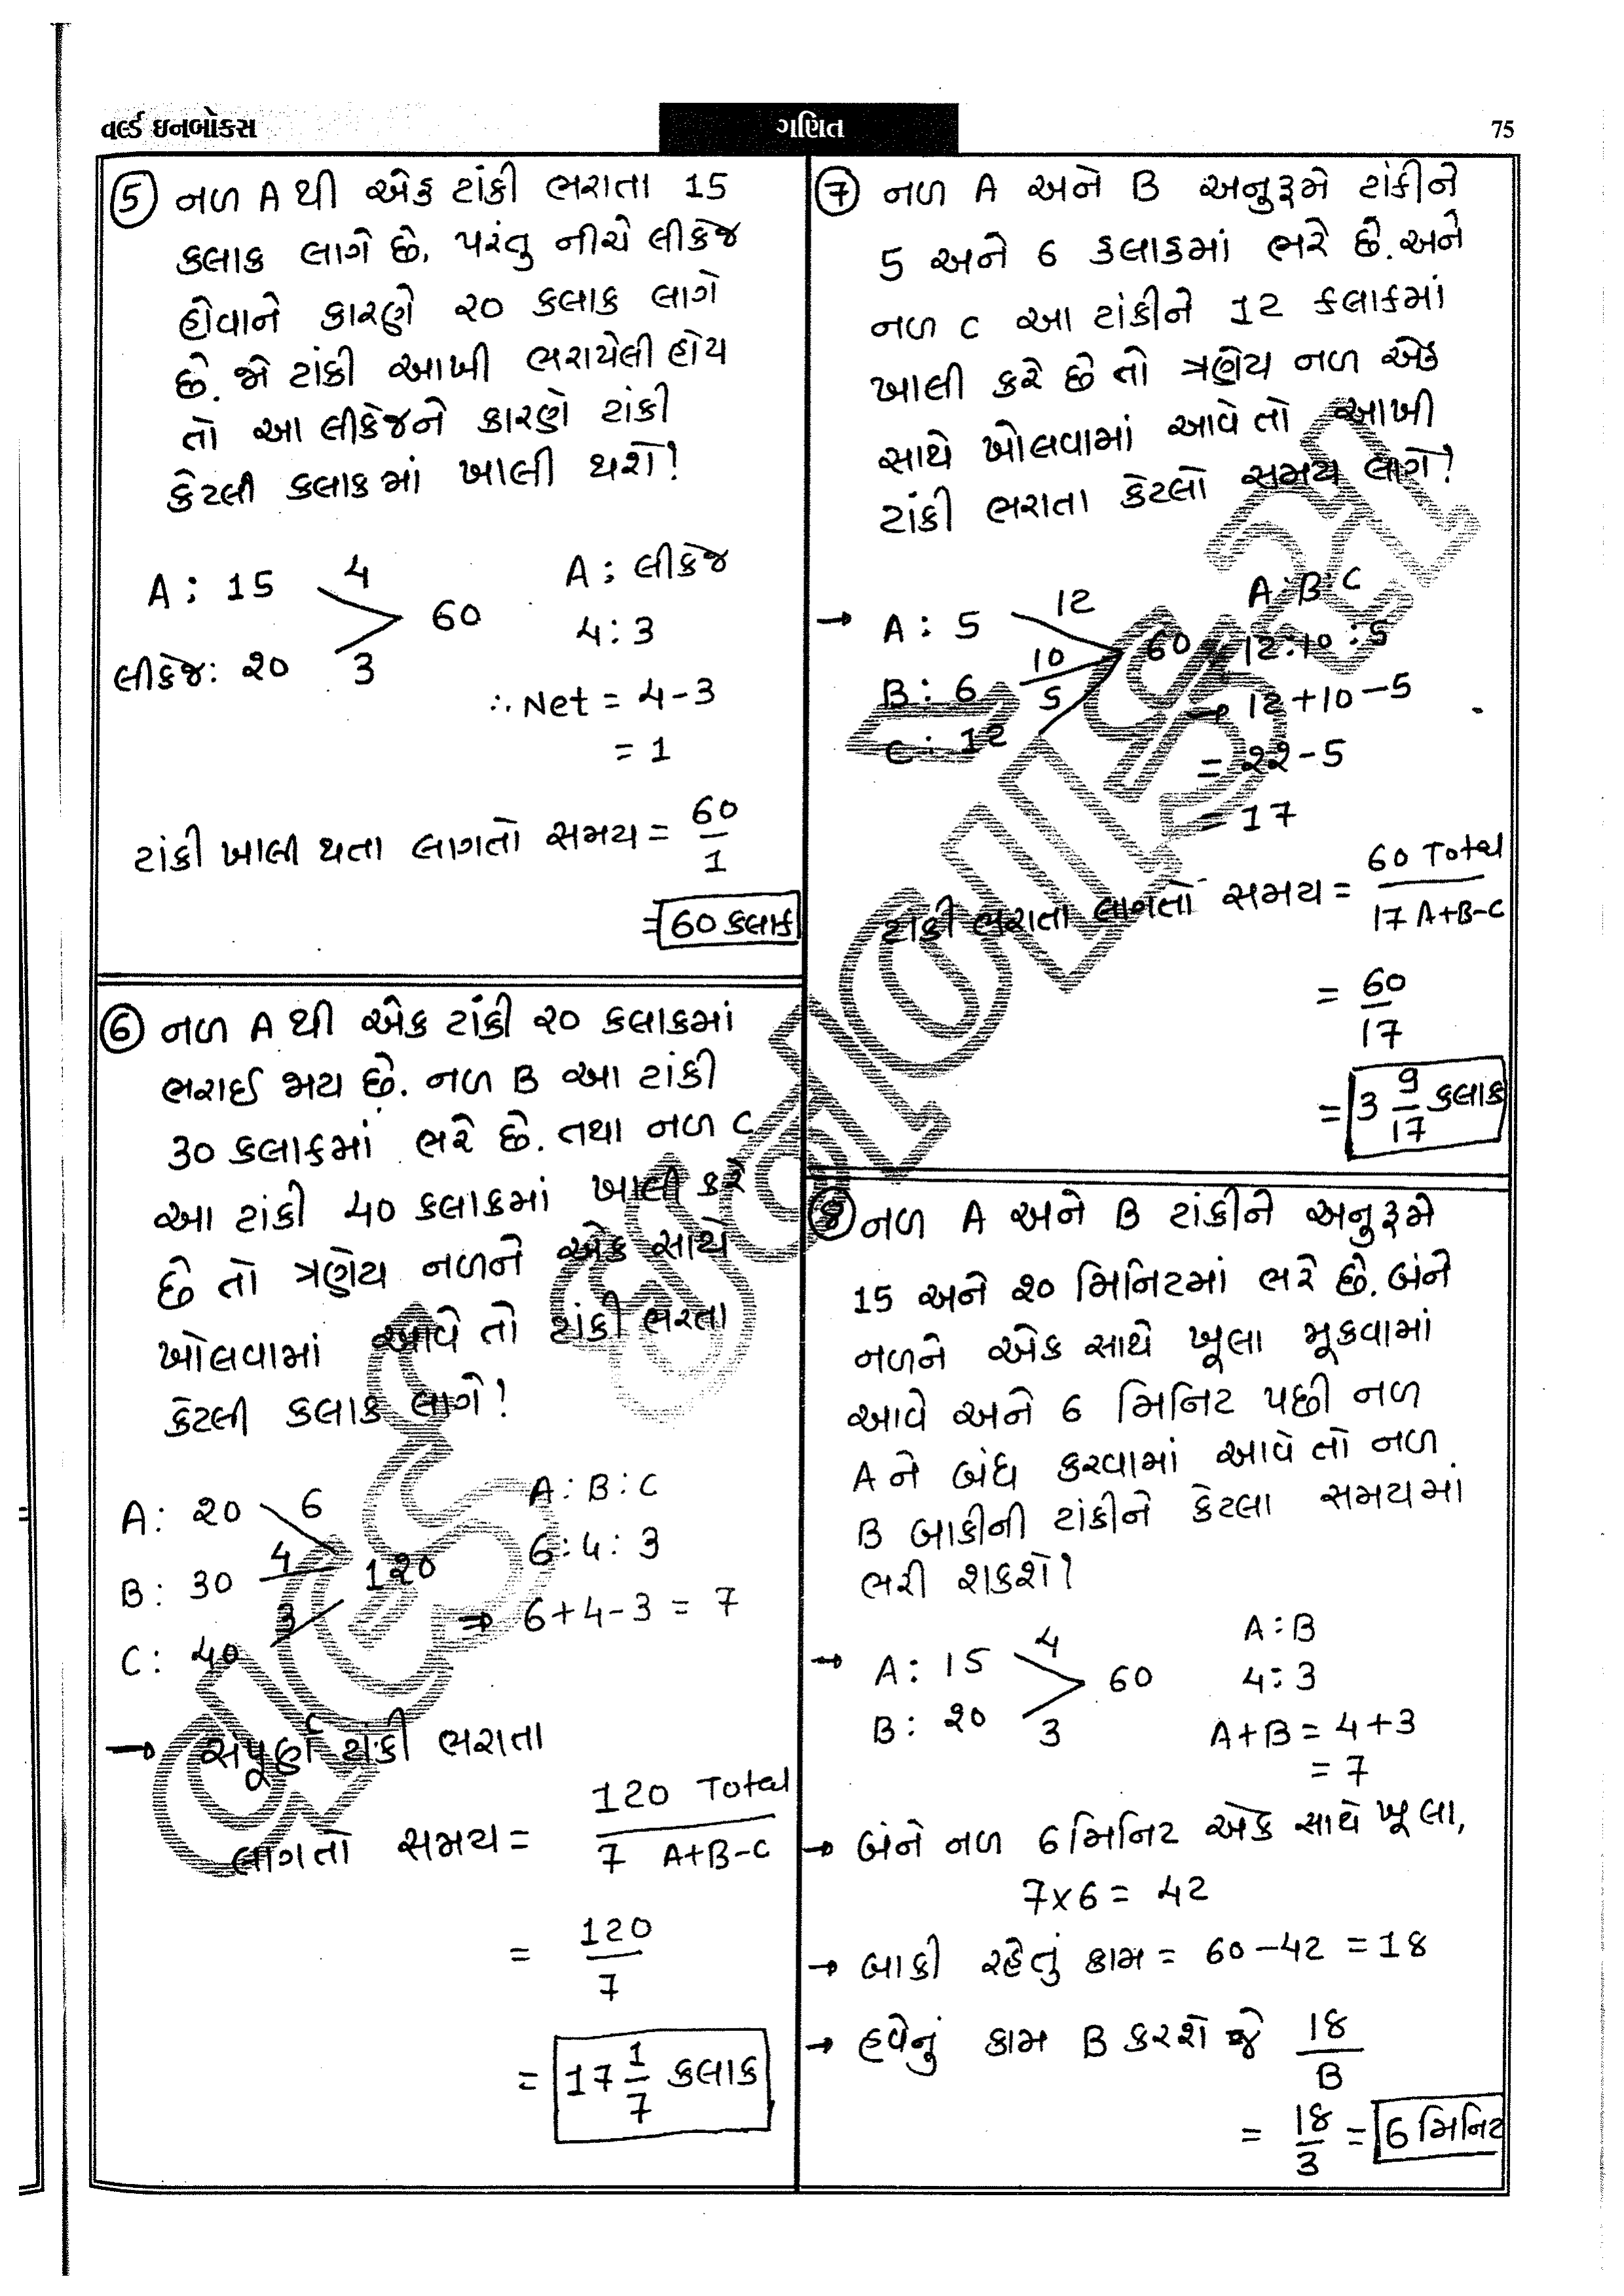 વર્લ્ડ ઇનબોક્સ
ગણિત
75
⑤ નળ A થી એક ટાંકી ભરાતા 15
કલાક લાગે છે. પરંતુ નીચે લીકેજ
હોવાને કારણે ૨૦ કલાક લાગે
છે. જો ટાંકી આખી ભરાયેલી હોય
તો આ લીકેજને કારણે ટાંકી
કેટલી કલાકમાં ખાલી થશે?
A : 15 4 60 A : લીકેજ
4 : 3
લીકેજ: ૨૦ 3
∴ Net = 4-3
= 1
ટાંકી ખાલી થતા લાગતો સમય = 60/1
= 60 કલાક
⑥ નળ A થી એક ટાંકી ૨૦ કલાકમાં
ભરાઈ જાય છે. નળ B આ ટાંકી
30 કલાકમાં ભરે છે. તથા નળ C
આ ટાંકી 40 કલાકમાં ખાલી કરે
છે તો ત્રણેય નળને એક સાથે
ખોલવામાં આવે તો ટાંકી ભરતા
કેટલી કલાક લાગે?
A : ૨૦ 6 A : B : C
B : 30 4 1૨૦ 6 : 4 : 3
C : 40 3 ⇒ 6+4-3 = 7
→ સંપૂર્ણ ટાંકી ભરાતા
લાગતો સમય = 120 Total / 7 A+B-C
= 120/7
= 17 1/7 કલાક
⑦ નળ A અને B અનુક્રમે ટાંકીને
5 અને 6 કલાકમાં ભરે છે. અને
નળ C આ ટાંકીને 12 કલાકમાં
ખાલી કરે છે તો ત્રણેય નળ એક
સાથે ખોલવામાં આવે તો આખી
ટાંકી ભરાતા કેટલો સમય લાગે?
→ A : 5 12 60 A : B : C
12 : 10 : 5
B : 6 10
C : 12 5
⇒ 12+10-5
= ૨૨-5
= 17
ટાંકી ભરાતા લાગતો સમય = 60 Total / 17 A+B-C
= 60/17
= 3 9/17 કલાક
⑧ નળ A અને B ટાંકીને અનુક્રમે
15 અને ૨૦ મિનિટમાં ભરે છે. બંને
નળને એક સાથે ખૂલા મૂકવામાં
આવે અને 6 મિનિટ પછી નળ
A ને બંધ કરવામાં આવે તો નળ
B બાકીની ટાંકીને કેટલા સમયમાં
ભરી શકશે?
→ A : 15 4 60 A : B
4 : 3
B : ૨૦ 3
A+B = 4+3
= 7
→ બંને નળ 6 મિનિટ એક સાથે ખૂલા,
7x6 = 42
→ બાકી રહેતું કામ = 60-42 = 18
→ હવેનું કામ B કરશે જે 18/B
= 18/3 = 6 મિનિટ